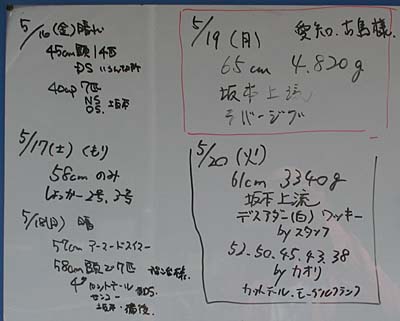 5/16(金)晴れ
45cm頭14匹
DS いろんな所
40up 7匹
NS
DS.
5/17(土)くもり
58cmのみ
しょっカー2号、3号
5/18(日)晴
57cm アーマードスイマー
58cm頭に7匹
4"カットテール
センコー
5/19(月) 愛知.古島様.
65cm 4.820g
坂本上流
ラバージグ
5/20(火)
61cm 3340g
坂本上流
デスアダー(白)ワッキー
byスタッフ
52.50.45.43.38
byカオリ
カットテール.モーゲルフランク